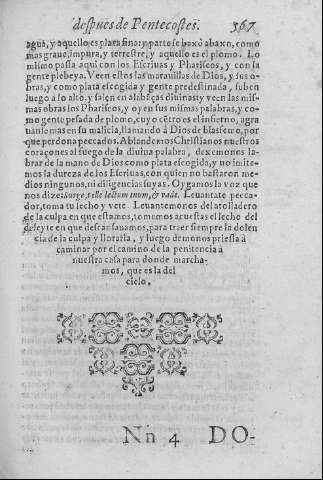 despues de Pentecostes. 567
agua, y aquello es plata fina: y parte se baxò abaxo, como
mas graue, impura, y terrestre, y aquello es el plomo. Lo
mismo passa aqui con los Escriuas y Phariseos, y con la
gente plebeya. Veen estos las marauillas de Dios, y sus o-
bras, y como plata escogida y gente predestinada, suben
luego a lo alto, y salen en alabãças diuinas: y veen las mis-
mas obras los Phariseos, y oyen sus mismas palabras, y co-
mo gente pesada de plomo, cuyo cẽtro es el infierno, agra
uanse mas en su malicia, llamando à Dios de blasfemo, por
que perdona peccados. Ablandemos Christianos nuestros
coraçones al fuego de la diuina palabra, dexemonos la-
brar de la mano de Dios como plata escogida, y no imite-
mos la dureza de los Escriuas, con quien no bastaron me-
dios ningunos, ni diligencias suyas. Oygamos la voz que
nos dize: Surge, tolle lectum tuum, & vade. Leuantate pecca-
dor, toma tu lecho y vete. Leuantemonos del atolladero
de la culpa en que estamos, tomemos acuestas el lecho del
deleyte en que descansauamos, para traer siempre la dolen
cia de la culpa y llorarla, y luego demonos priessa à
caminar por el camino de la penitencia à
nuestra casa para donde marcha-
mos, que es la del
cielo.
Nn 4 DO-